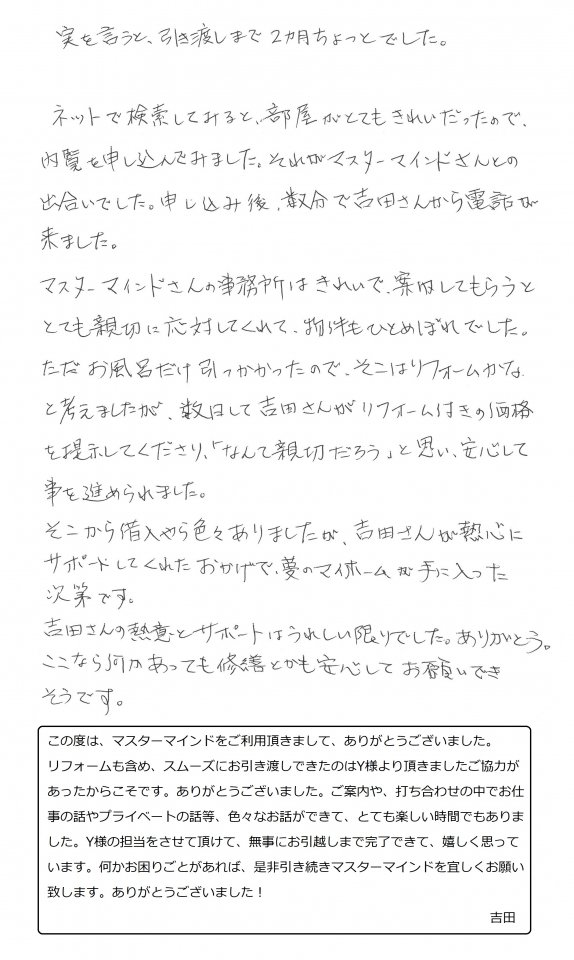 実を言うと、引き渡しまで2ヵ月ちょっとでした。
ネットで検索してみると、部屋がとてもきれいだったので、
内覧を申し込んでみました。それがマスターマインドさんとの
出合いでした。申し込み後、数分で吉田さんから電話が
来ました。
マスターマインドさんの事務所はきれいで、案内してもらうと
とても親切に応対してくれて、物件もひとめぼれでした。
ただお風呂だけ引っかかったので、そこはリフォームかな
と考えましたが、数日して吉田さんがリフォーム付きの価格
を提示してくださり、「なんて親切だろう」と思い、安心して
事を進められました。
そこから借入やら色々ありましたが、吉田さんが熱心に
サポートしてくれたおかげで、夢のマイホームが手に入った
次第です。
吉田さんの熱意とサポートはうれしい限りでした。ありがとう。
ここなら何かあっても修繕とかも安心してお願いでき
そうです。
この度は、マスターマインドをご利用頂きまして、ありがとうございました。
リフォームも含め、スムーズにお引き渡しできたのはY様より頂きましたご協力が
あったからこそです。ありがとうございました。ご案内や、打ち合わせの中でお仕
事の話やプライベートの話等、色々なお話ができて、とても楽しい時間でもありま
した。Y様の担当をさせて頂けて、無事にお引越しまで完了できて、嬉しく思って
います。何かお困りごとがあれば、是非引き続きマスターマインドを宜しくお願い
致します。ありがとうございました！
吉田